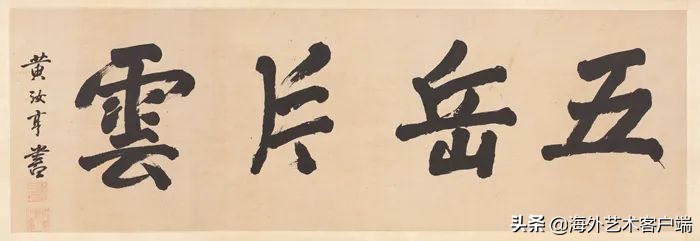 五岳片雲
黄汝亨書
头条 @海外艺术客户端